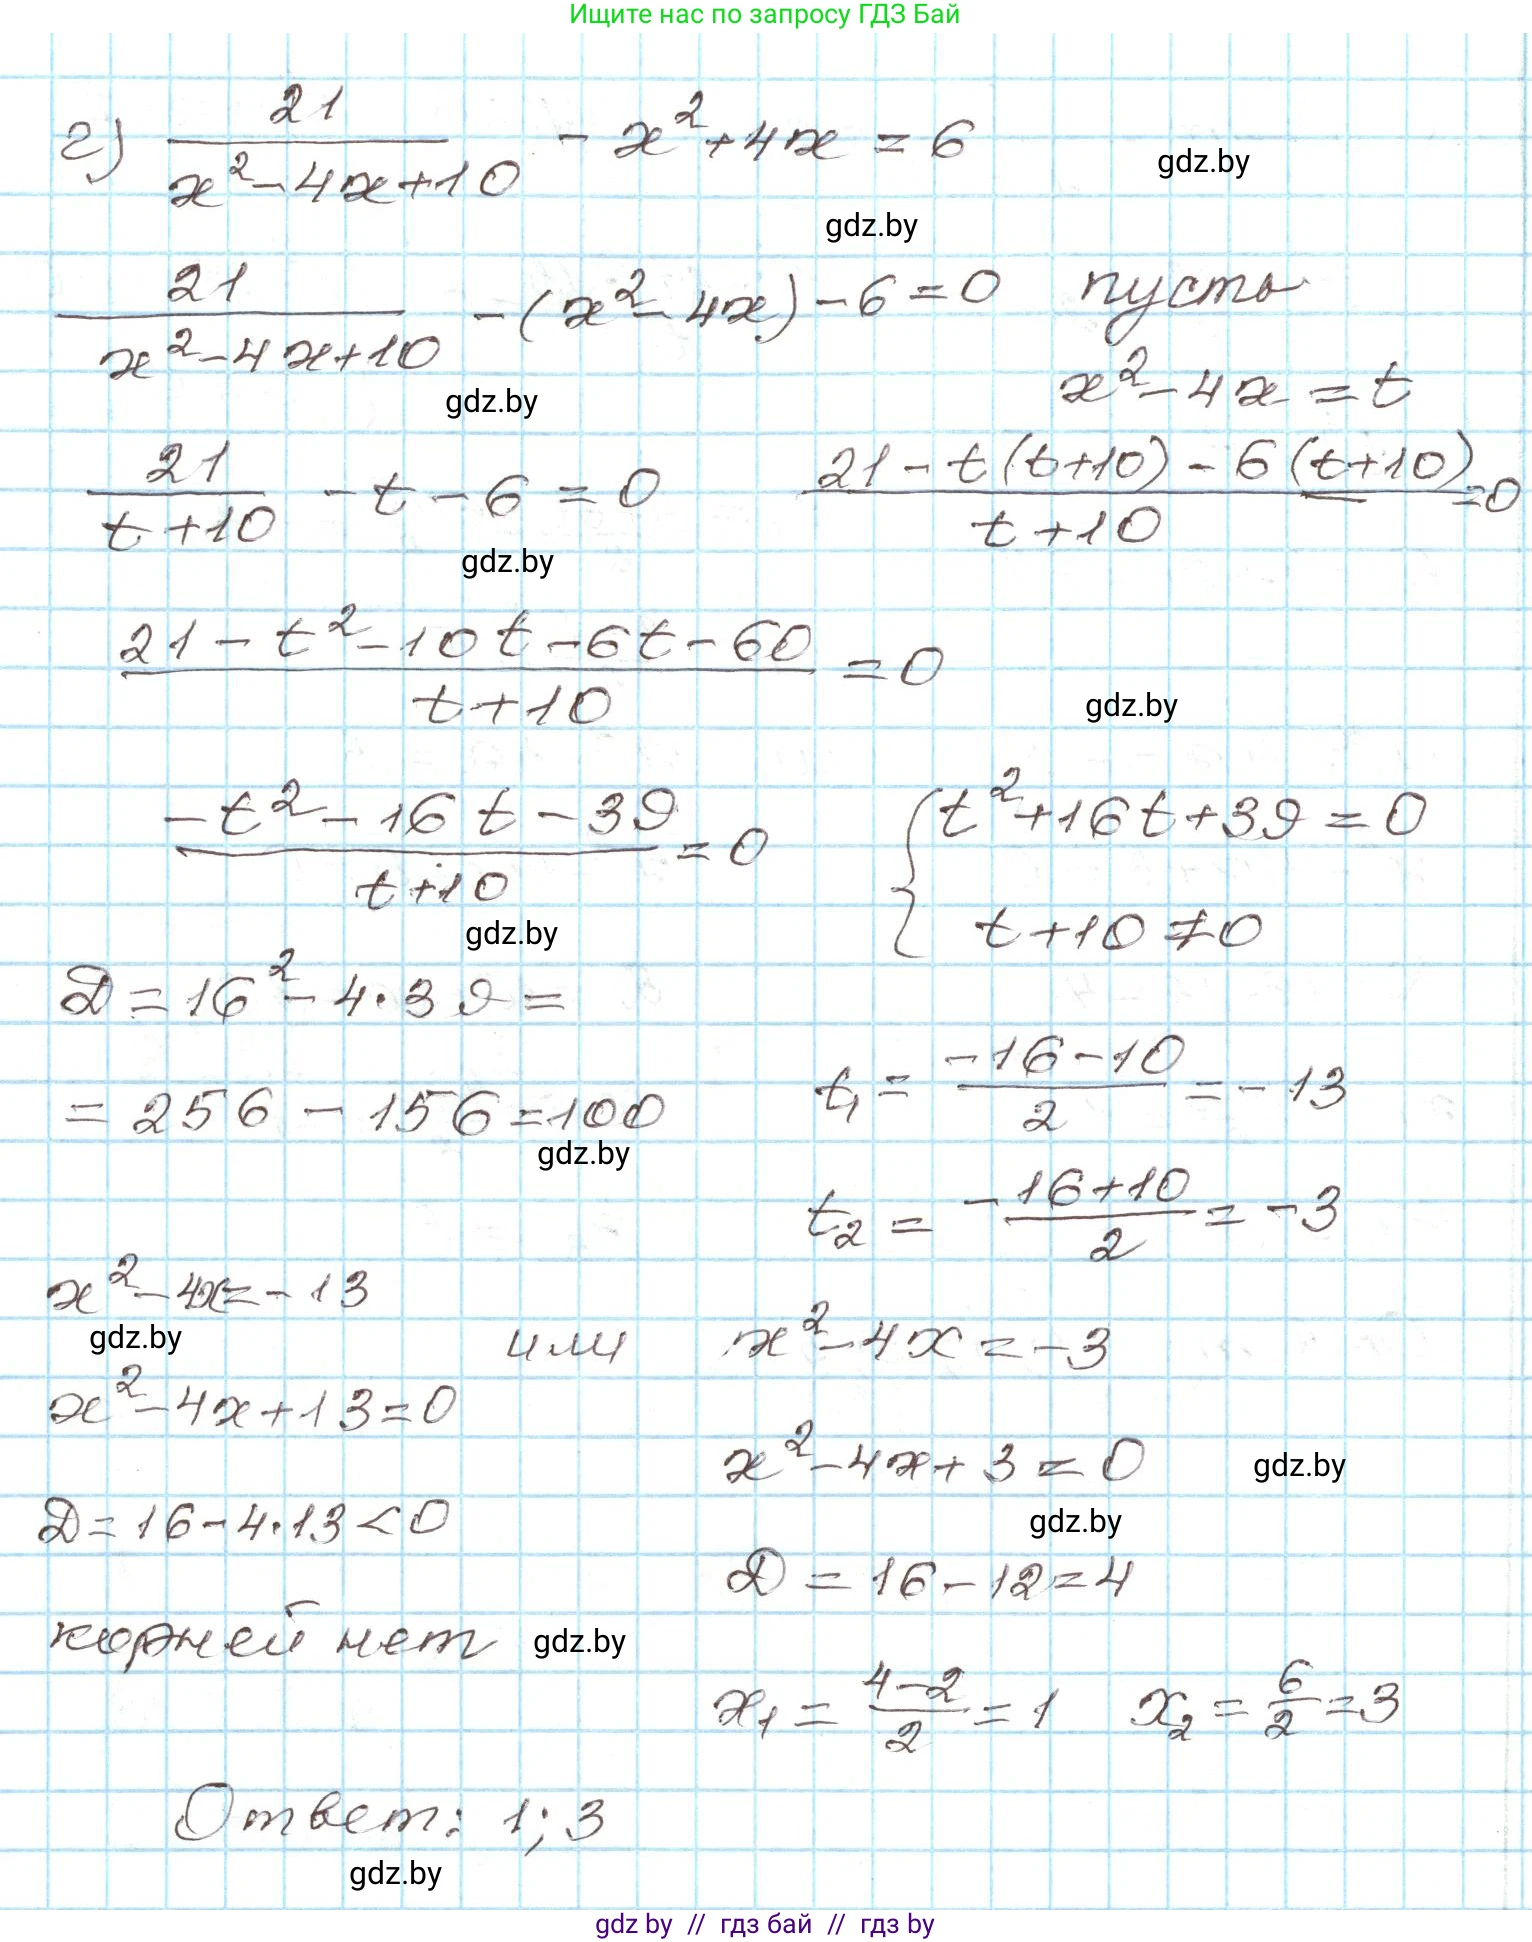 Ищите нас по запросу ГДЗ Бай
г) 21/(x²-4x+10) - x²+4x = 6
gdz.by
gdz.by
21/(x²-4x+10) - (x²-4x) - 6 = 0 пусть
x²-4x = t
gdz.by
21/(t+10) - t - 6 = 0 (21-t(t+10)-6(t+10))/(t+10) = 0
gdz.by
(21-t²-10t-6t-60)/(t+10) = 0
gdz.by
(-t²-16t-39)/(t+10) = 0 { t²+16t+39=0
t+10≠0
gdz.by
D = 16²-4·39 =
= 256 - 156 = 100 t₁ = (-16-10)/2 = -13
gdz.by
t₂ = (-16+10)/2 = -3
x²-4x=-13
gdz.by
или x²-4x=-3
x²-4x+13=0
x²-4x+3=0
gdz.by
D=16-4·13<0
gdz.by
D = 16-12=4
корней нет
gdz.by
x₁ = (4-2)/2 = 1 x₂ = 6/2 = 3
Ответ: 1; 3
gdz.by
gdz by // гдз бай // гдз by